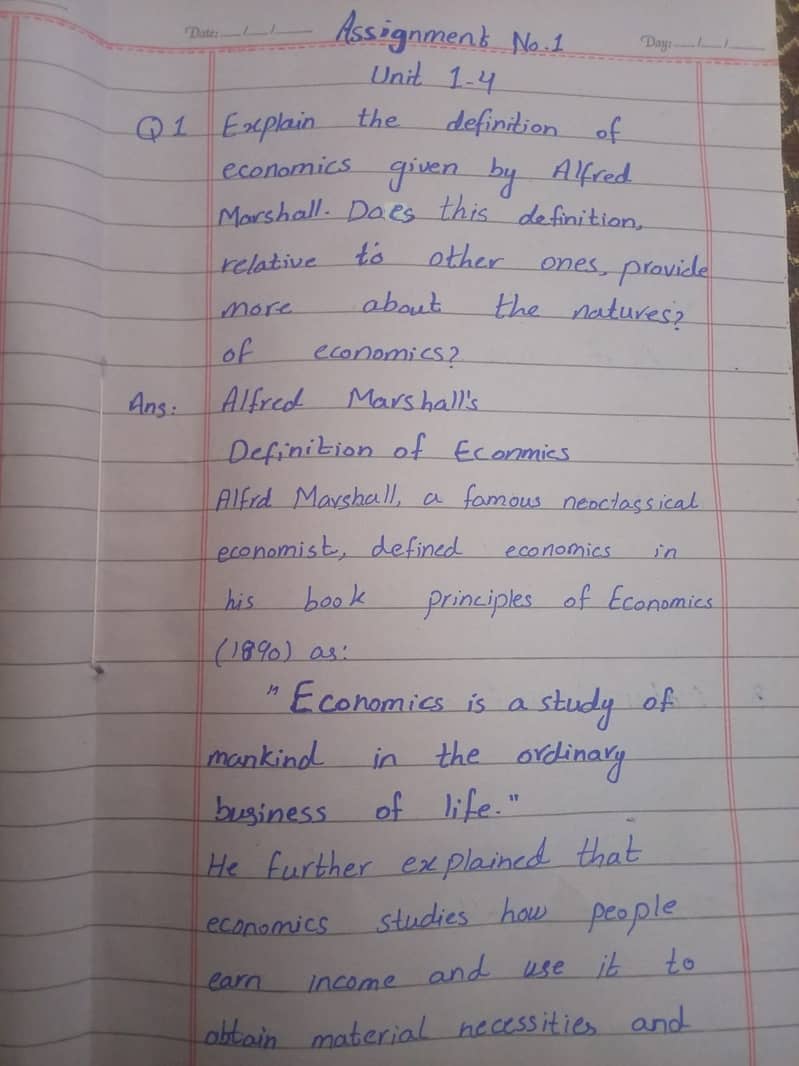 Date: __/__/__ Assignment No.1 Day: __/__/__
Unit 1-4
Q1 Explain the definition of
economics given by Alfred
Marshall. Does this definition,
relative to other ones, provide
more about the natures?
of economics?
Ans: Alfred Marshall's
Definition of Econmics
Alfrd Marshall, a famous neoclassical
economist, defined economics in
his book principles of Economics
(1890) as:
"Economics is a study of
mankind in the ordinary
business of life."
He further explained that
economics studies how people
earn income and use it to
obtain material necessities and